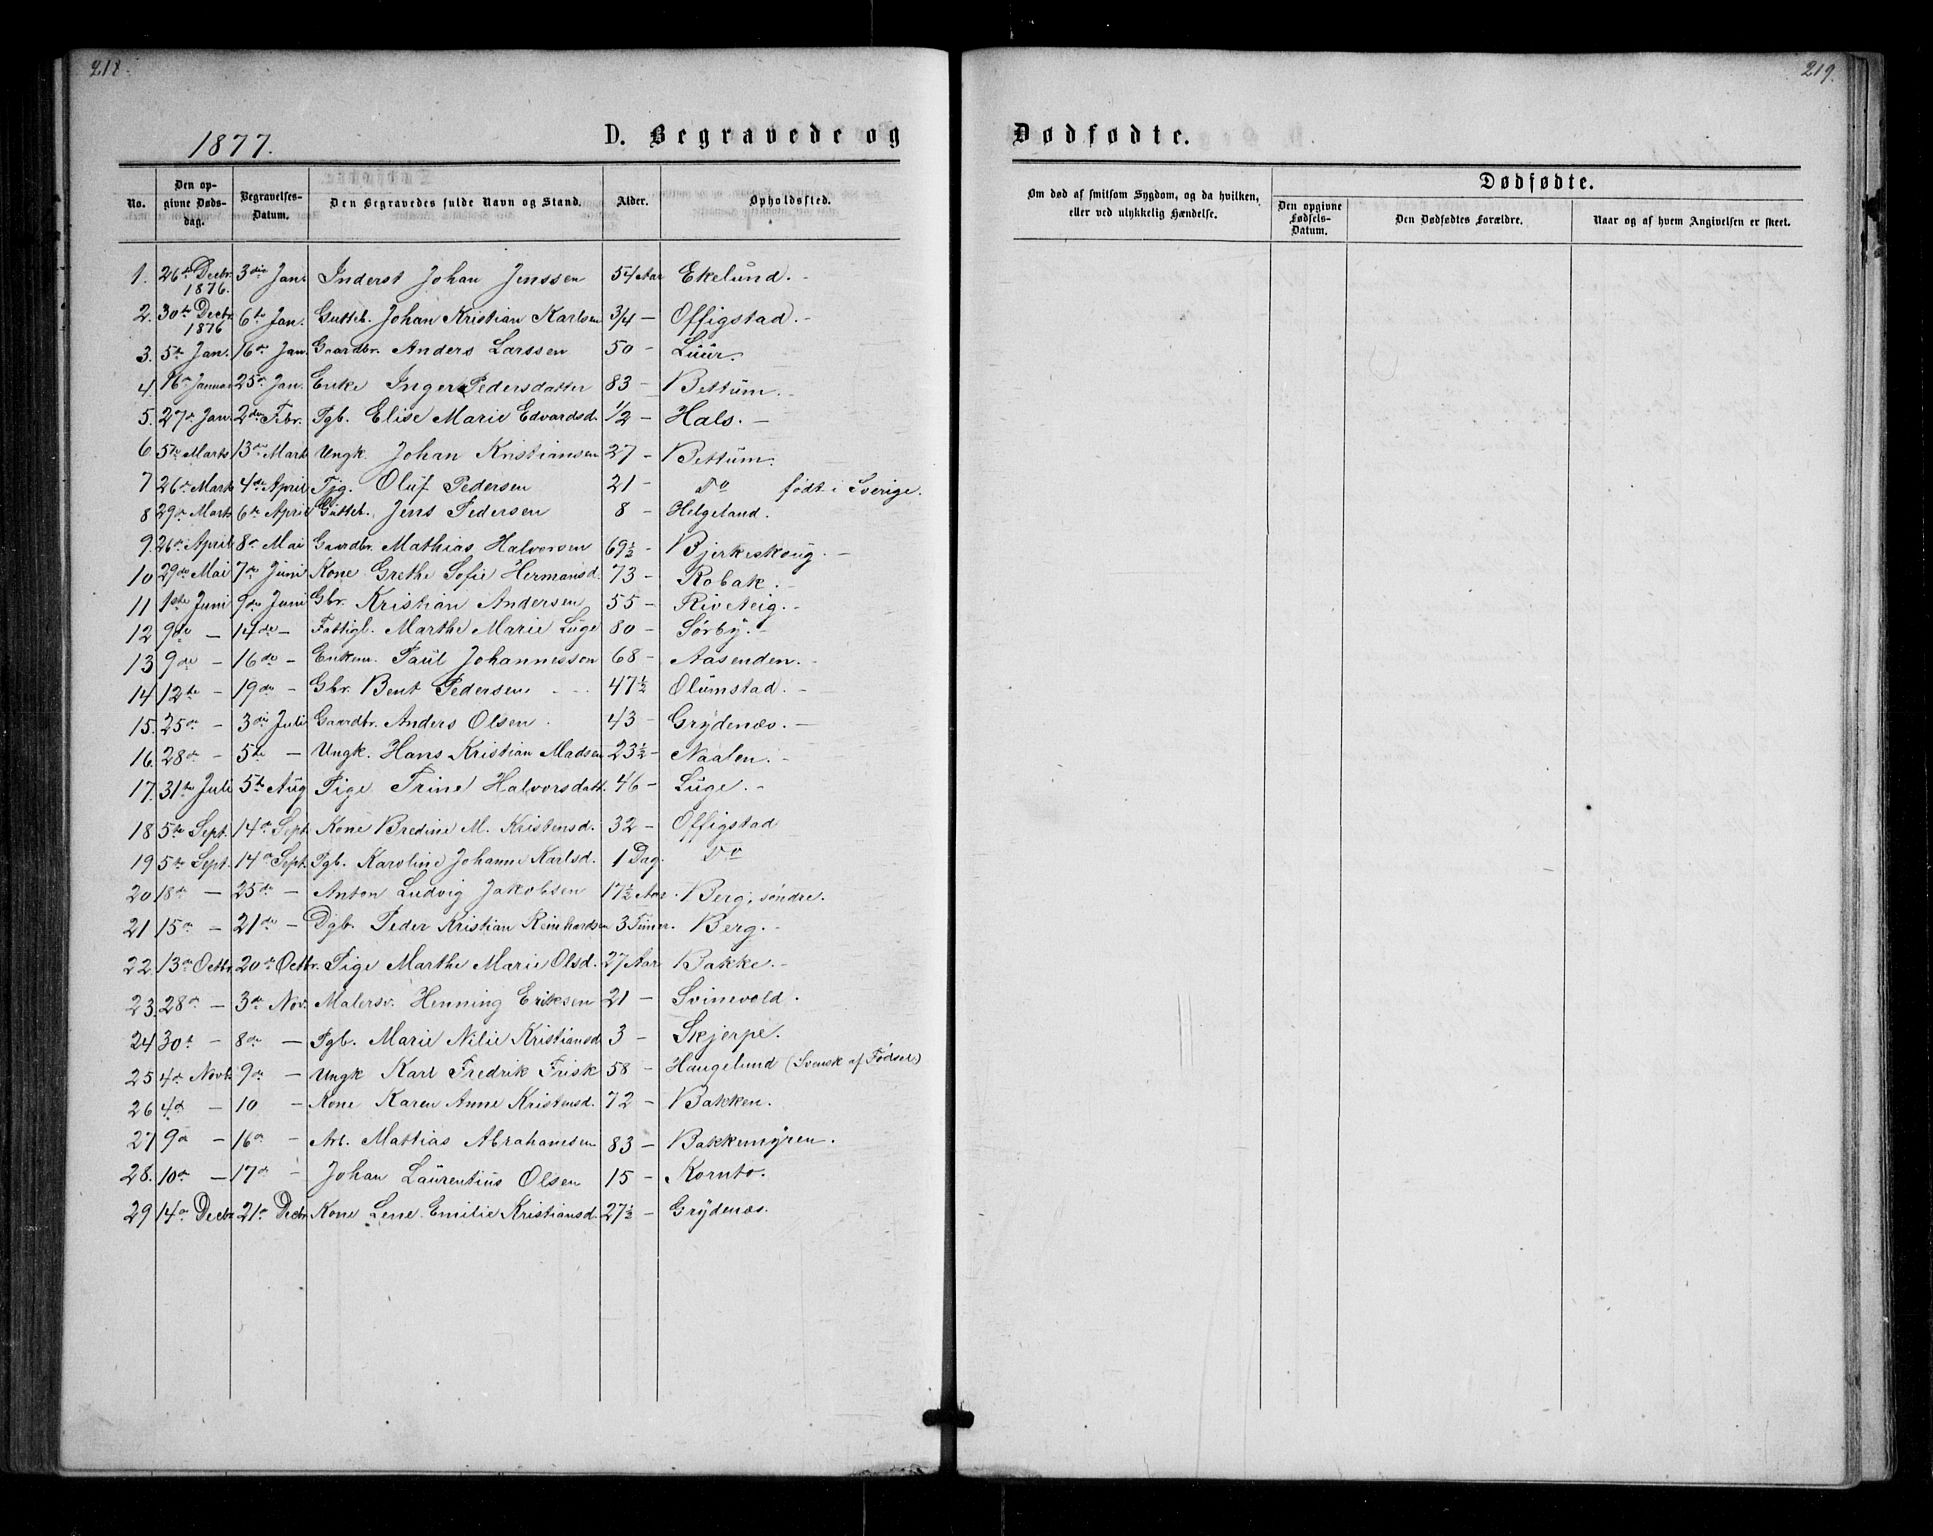 218.
1877.
D. Begravede og
No. | Den opgivne Dødsdag. | Begravelses-Datum. | Den Begravedes fulde Navn og Stand. | Alder. | Opholdssted.
1. 26de Decbr. 1876. 3die Jan. Inderst Johan Jenssen 54 Aar Ekelund. -
2. 30te Decbr 1876 6te Jan. Gutteb. Johan Kristian Karlsen 3/4 - Offigstad. -
3. 5te Jan. 16de Jan. Gaardbr. Anders Larssen 50 - Luur.
4. 16de Januar 25de Jan. Enke Inger Pedersdatter 83 - Bettum. -
5. 27de Jan. 2den Febr. Pgb. Elise Marie Edvardsd. 1/2 - Hals. -
6 5te Marts 13de Mart Ungk. Johan Kristiansen 27 - Bettum.
7 26de Mart 4de April Tjg. Oluf Pedersen 21 - Do født i Sverige.
8 29de Marts 6te April Gutteb. Jens Pedersen 8 - Helgeland.
9. 26de April 8de Mai Gaardbr. Mathias Halvorsen 69½ - Bjerkeskoug. -
10 29de Mai 7de Juni Kone Grethe Sofie Hermansd. 73 - Robak. -
11 1ste Juni 9de Juni Gbr. Kristian Andersen 55 - Riveteig. -
12 9de - 14de - Fattigl. Marthe Marie Luge 80 - Sørby. -
13 9de - 16de - Enkem. Paul Johannessen 68 - Aasenden. -
14 12te - 19de - Gbr. Bent Pedersen 47½ Olumstad. -
15. 25de - 3die Juli Gaardbr. Anders Olsen 43 - Grydenæs. -
16. 28de - 5te - Ungk. Hans Kristian Madsen 23½ - Naalen. -
17. 31te Juli 5te Aug Pige Trine Halvorsdatt. 46 - Luge. -
18 5te Sept. 14de Sept. Kone Bredine M. Kristensd. 32 - Offigstad
19 5te Sept. 14de Sept. Pgb. Karoline Johanne Karlsd. 1 Dag. Do
20 18de - 25de - Anton Ludvig Jakobsen 17½ Aar. Berg, søndre.
21 15de - 21de - Dgb. Peder Kristian Reinhardsen 3 Timer. Berg. -
22. 13de Octbr. 20de Octbr. Pige Marthe Marie Olsd. 27 Aar Bakke. -
23. 28de - 3de Nov. Malersv. Henning Eriksen 21 - Svinevold.
24 30te - 8de - Pgb. Marie Nilie Kristiansd 3 - Skjerpe.
25 4de Novb. 9de - Ungk Karl Fredrik Frisk 58 - Haugelund (Svensk af Fødsel)
26 4de - 10 - Kone Karen Anne Kristensd. 72 - Bakken.
27 9de - 16de - Arb. Mattias Abrahamsen 83 - Bakkemyren.
28. 10de - 17de - Johan Laurentius Olsen 15 - Kornto.
29 14de Decbr 21de Decbr Kone Lene Emilie Kristiansd. 27½ - Grydenæs.
219.
Dødfødte.
Om død af smitsom Sygdom, og da hvilken, eller ved ulykkelig Hændelse. | Dødfødte.
Den opgivne Fødsels-Datum. | Den Dødfødtes Forældre. | Naar og af hvem Angivelsen er skeet.